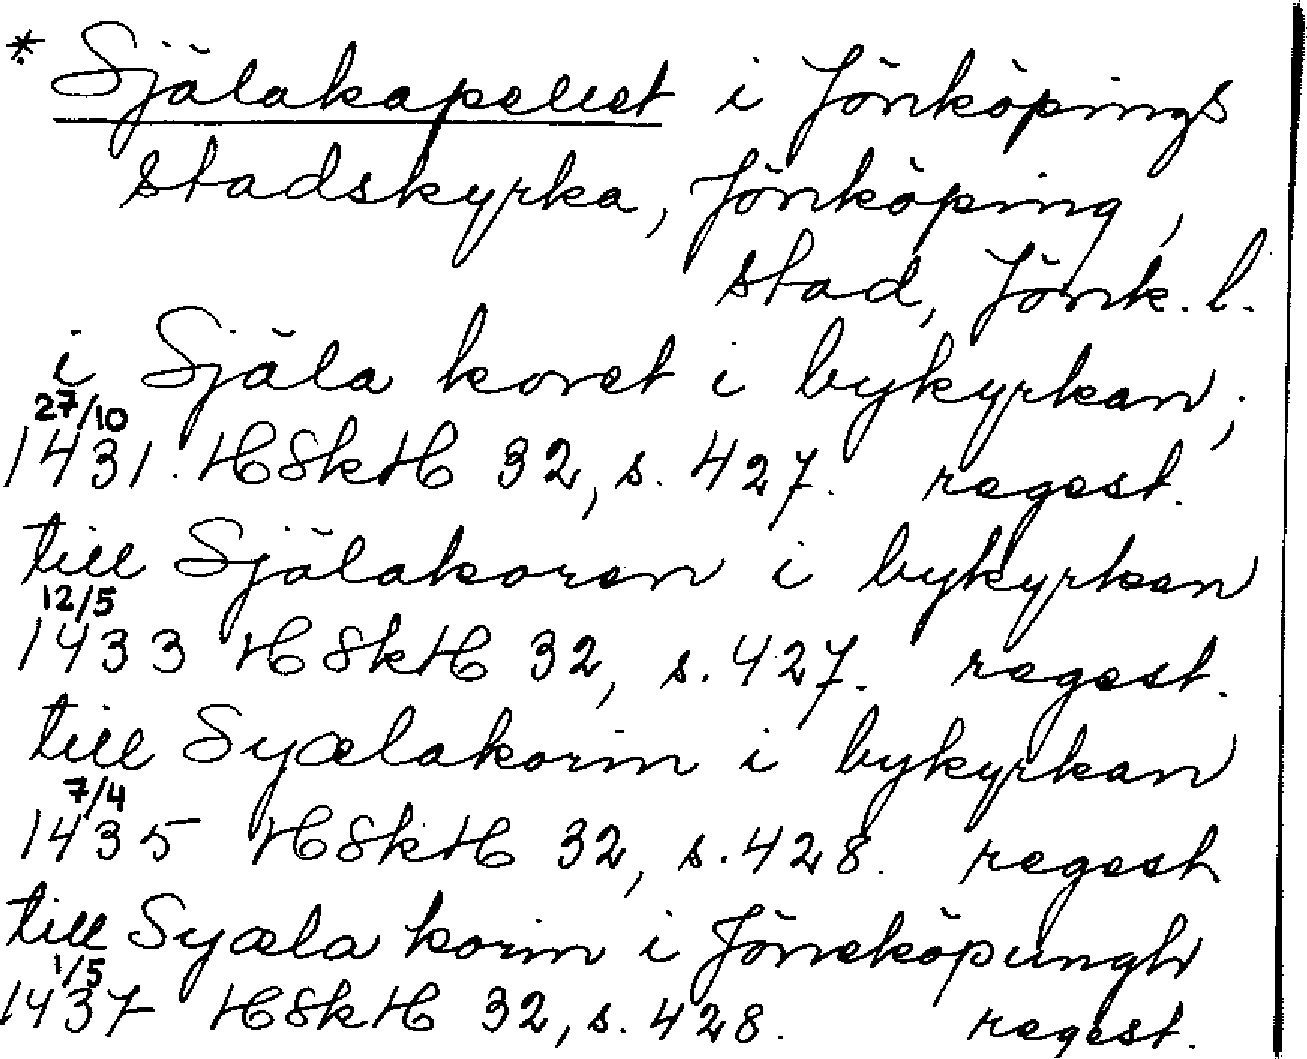 * Själakapellet i Jönköpings
stadskyrka, Jönköping,
stad, Jönk. l.
i Själa koret i bykyrkan;
27/10
1431. HSkH 32, s. 427. regest.
till Själakoren i bykyrkan
12/5
1433 HSkH 32, s. 427. regest.
till Syælakorin i bykyrkan
7/4
1435 HSkH 32, s. 428. regest
till Syæla korin i Jöneköpungh
1/5
1437 HSkH 32, s. 428. regest.